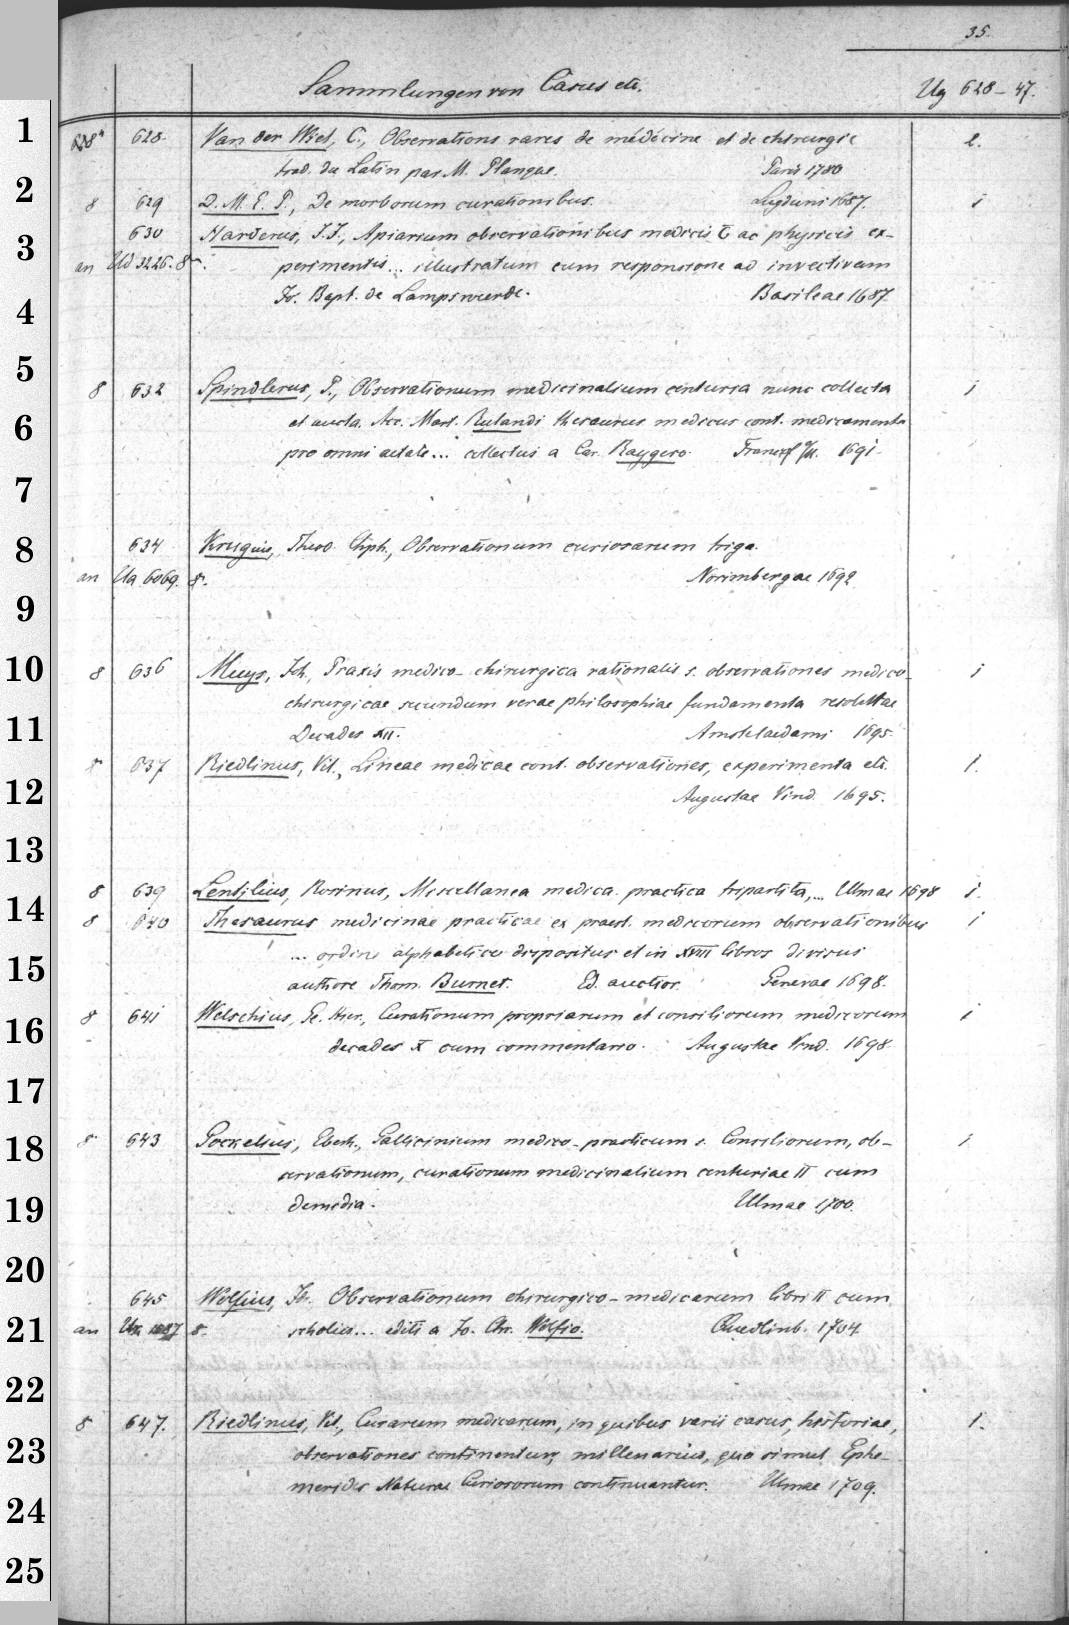 35.
Sammlungen von Casus etc. Ug 628-47.
628 Van der Wiel, C., Observations rares de médécine et de chirurgie 2.
trad. du Latin par M. Planque. Paris 1780
8 629 D. M. E. P., De morborum curationibus. Lugduni 1687. 1
630 Harderus, J. J., Apiarium observationibus medicis ac physicis ex-
an Ud 3226. 8°. perimentis... illustratum cum responsione ad invectivam
Jo. Bapt. de Lampswerde. Basileae 1687
8 632 Spindlerus, P., Observationum medicinalium centuria nunc collecta 1
et aucta. Acc. Mart. Rulandi thesaurus medicus cont. medicamenta
pro omni aetate... collectus a Car. Raygero. Francf a/M. 1691.
634 Krugius, Theod. Chph., Observationum curiosarum triga.
an Ua 6069. 8. Norimbergae 1692
8 636 Muys, Joh., Praxis medico-chirurgica rationalis s. observationes medico- 1
chirurgicae secundum verae philosophiae fundamenta resolutae
Decades XII. Amstelaedami 1695
8 637 Riedlinus, Vit., Lineae medicae cont. observationes, experimenta etc. 1.
Augustae Vind. 1695.
8 639 Lentilius, Rosinus, Miscellanea medica practica tripartita,... Ulmae 1698 1.
8 640 Thesaurus medicinae practicae ex praest. medicorum observationibus 1
... ordine alphabetico dispositus et in XVIII libros divisus
authore Thom. Burnet. Ed. auctior. Genevae 1698.
8 641 Welschius, Ge. Hier., Curationum propriarum et consiliorum medicorum 1
decades X cum commentario. Augustae Vind. 1698
8 643 Gockelius, Eberh., Gallicinium medico-practicum s. Consiliorum, ob- 1
servationum, curationum medicinalium centuriae II cum
demidia. Ulmae 1700.
645 Wolfius, Jo. Observationum chirurgico-medicarum libri II cum
an 8. scholiis... editi a Jo. Chr. Wolfio. Quedlinb. 1704
8 647. Riedlinus, Vit., Curarum medicarum, in quibus varii casus, historiae, 1.
observationes continentur, millenarius, quo simul Ephe-
merides Naturae Curiosorum continuantur. Ulmae 1709.
1
2
3
4
5
6
7
8
9
10
11
12
13
14
15
16
17
18
19
20
21
22
23
24
25